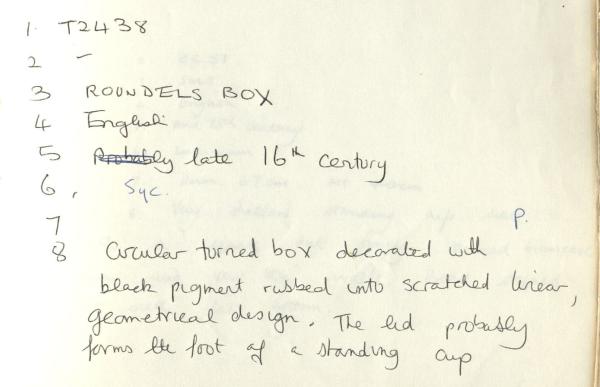 1. T2438
2 –
3 ROUNDELS BOX
4 English
5 Probably late 16th century
6. Syc.
7 P.
8 Circular turned box decorated with
black pigment rubbed into scratched linear,
geometrical design. The lid probably
forms the foot of a standing cup